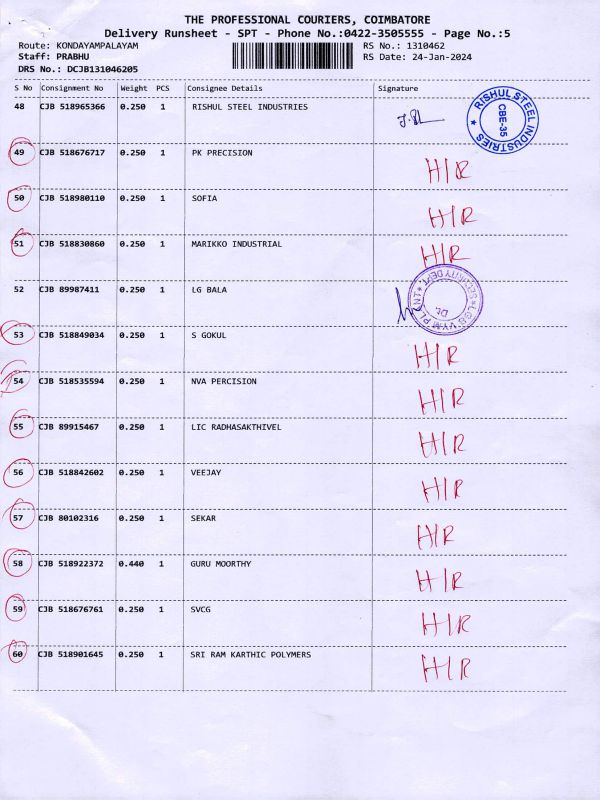 THE PROFESSIONAL COURIERS, COIMBATORE
Delivery Runsheet - SPT - Phone No.:0422-3505555 - Page No.:5
Route: KONDAYAMPALAYAM RS No.: 1310462
Staff: PRABHU RS Date: 24-Jan-2024
DRS No.: DCJB131046205
S No Consignment No Weight PCS Consignee Details Signature
48 CJB 518965366 0.250 1 RISHUL STEEL INDUSTRIES
RISHUL STEEL INDUSTRIES ★ CBE-35
49 CJB 518676717 0.250 1 PK PRECISION H/R
50 CJB 518980110 0.250 1 SOFIA H/R
51 CJB 518830860 0.250 1 MARIKKO INDUSTRIAL H/R
52 CJB 89987411 0.250 1 LG BALA
53 CJB 518849034 0.250 1 S GOKUL H/R
54 CJB 518535594 0.250 1 NVA PERCISION H/R
55 CJB 89915467 0.250 1 LIC RADHASAKTHIVEL H/R
56 CJB 518842602 0.250 1 VEEJAY H/R
57 CJB 80102316 0.250 1 SEKAR H/R
58 CJB 518922372 0.440 1 GURU MOORTHY H/R
59 CJB 518676761 0.250 1 SVCG H/R
60 CJB 518901645 0.250 1 SRI RAM KARTHIC POLYMERS H/R